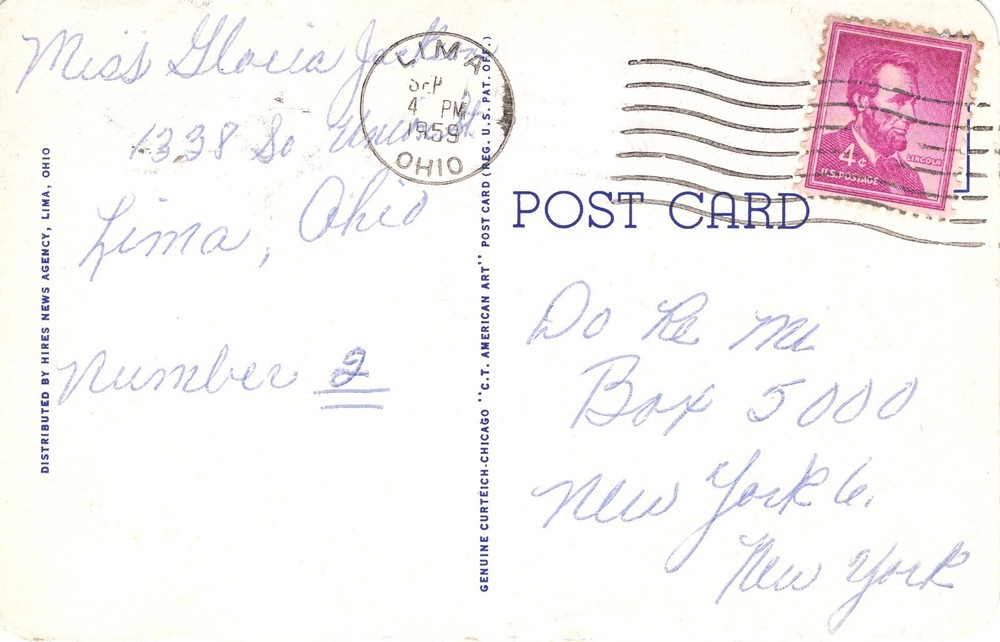 Miss Gloria Jackson
1338 So Union St
Lima, Ohio
Number 2
DISTRIBUTED BY HIRES NEWS AGENCY, LIMA, OHIO
LIMA
SEP
4 PM
1959
OHIO
GENUINE CURTEICH-CHICAGO "C.T. AMERICAN ART" POST CARD (REG. U.S. PAT. OFF.)
4¢
LINCOLN
U.S. POSTAGE
POST CARD
Do Re Mi
Box 5000
New York 6.
New York